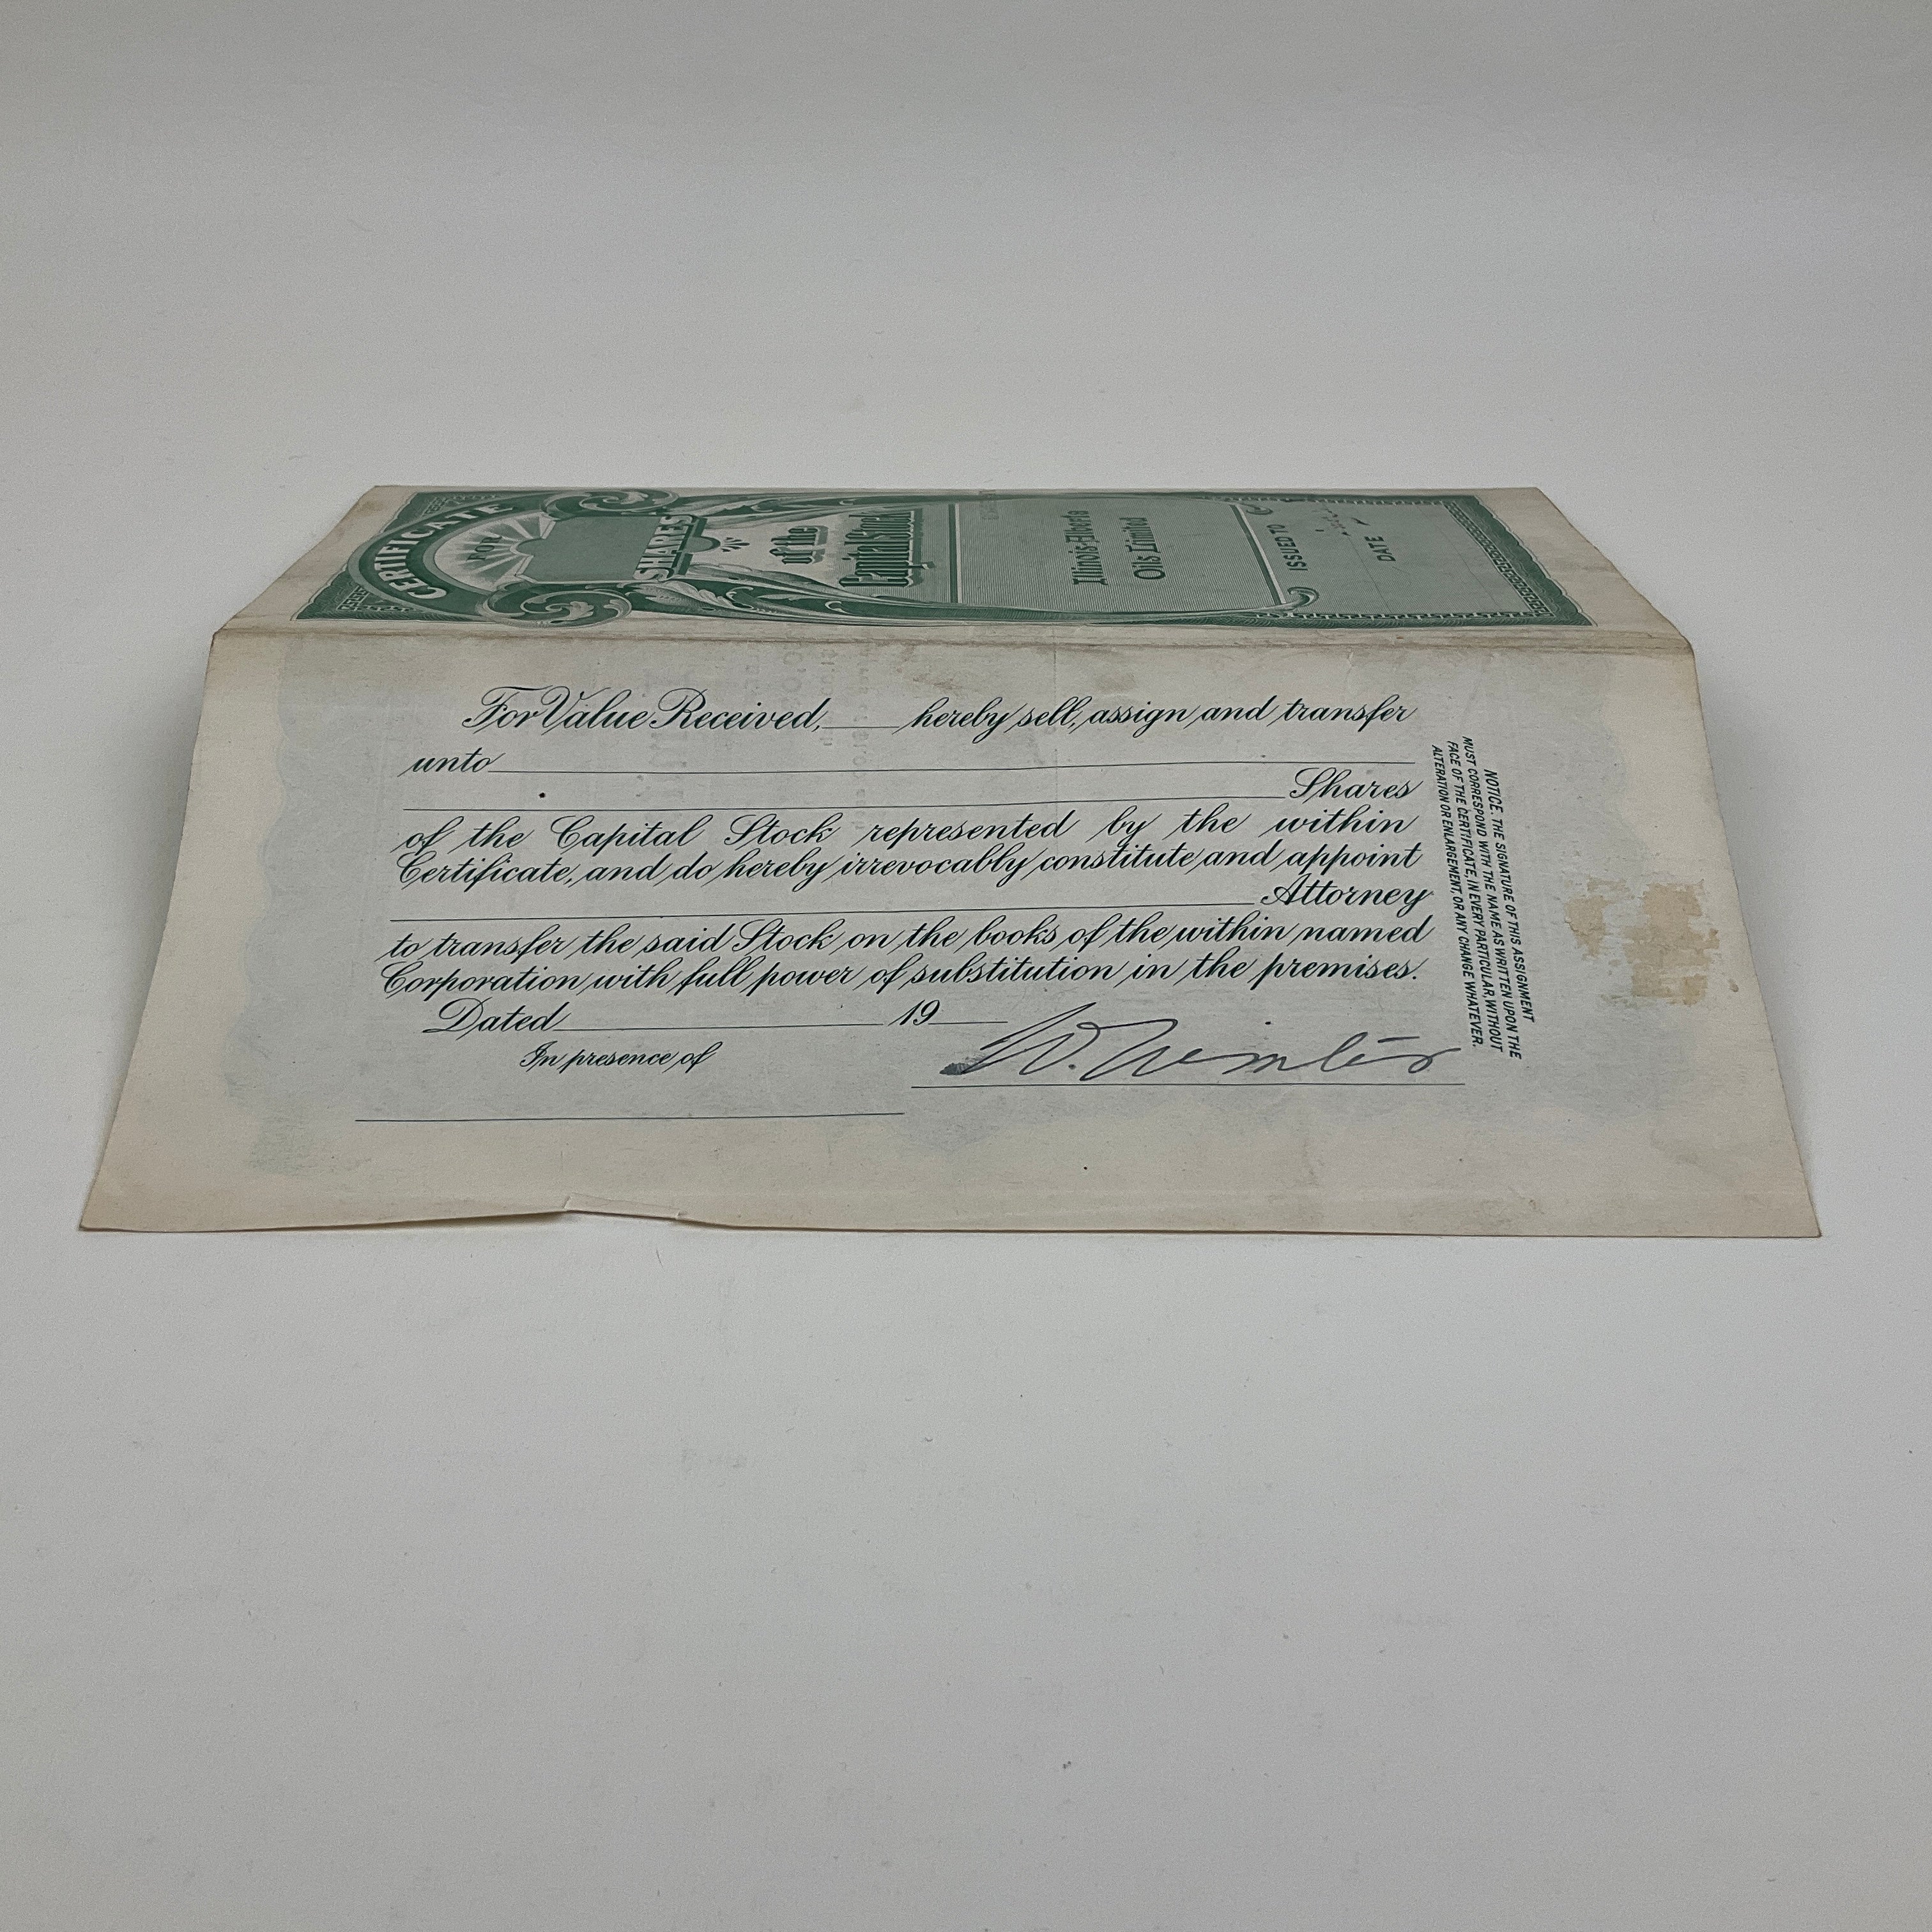 CERTIFICATE
FOR
SHARES
of the
Capital Stock
Illinois-Alberta
Oils Limited
ISSUED TO
DATE
For Value Received, hereby sell, assign and transfer
unto
Shares
of the Capital Stock represented by the within
Certificate, and do hereby irrevocably constitute and appoint
Attorney
to transfer the said Stock on the books of the within named
Corporation with full power of substitution in the premises.
Dated 19
In presence of
NOTICE. THE SIGNATURE OF THIS ASSIGNMENT
MUST CORRESPOND WITH THE NAME AS WRITTEN UPON THE
FACE OF THE CERTIFICATE, IN EVERY PARTICULAR, WITHOUT
ALTERATION OR ENLARGEMENT, OR ANY CHANGE WHATEVER.